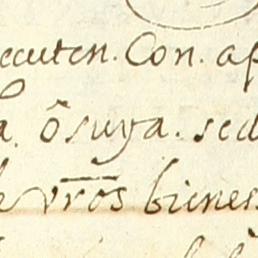 ecuten. Con. ap
a. ôsuya. sed
e vr̃os bienes